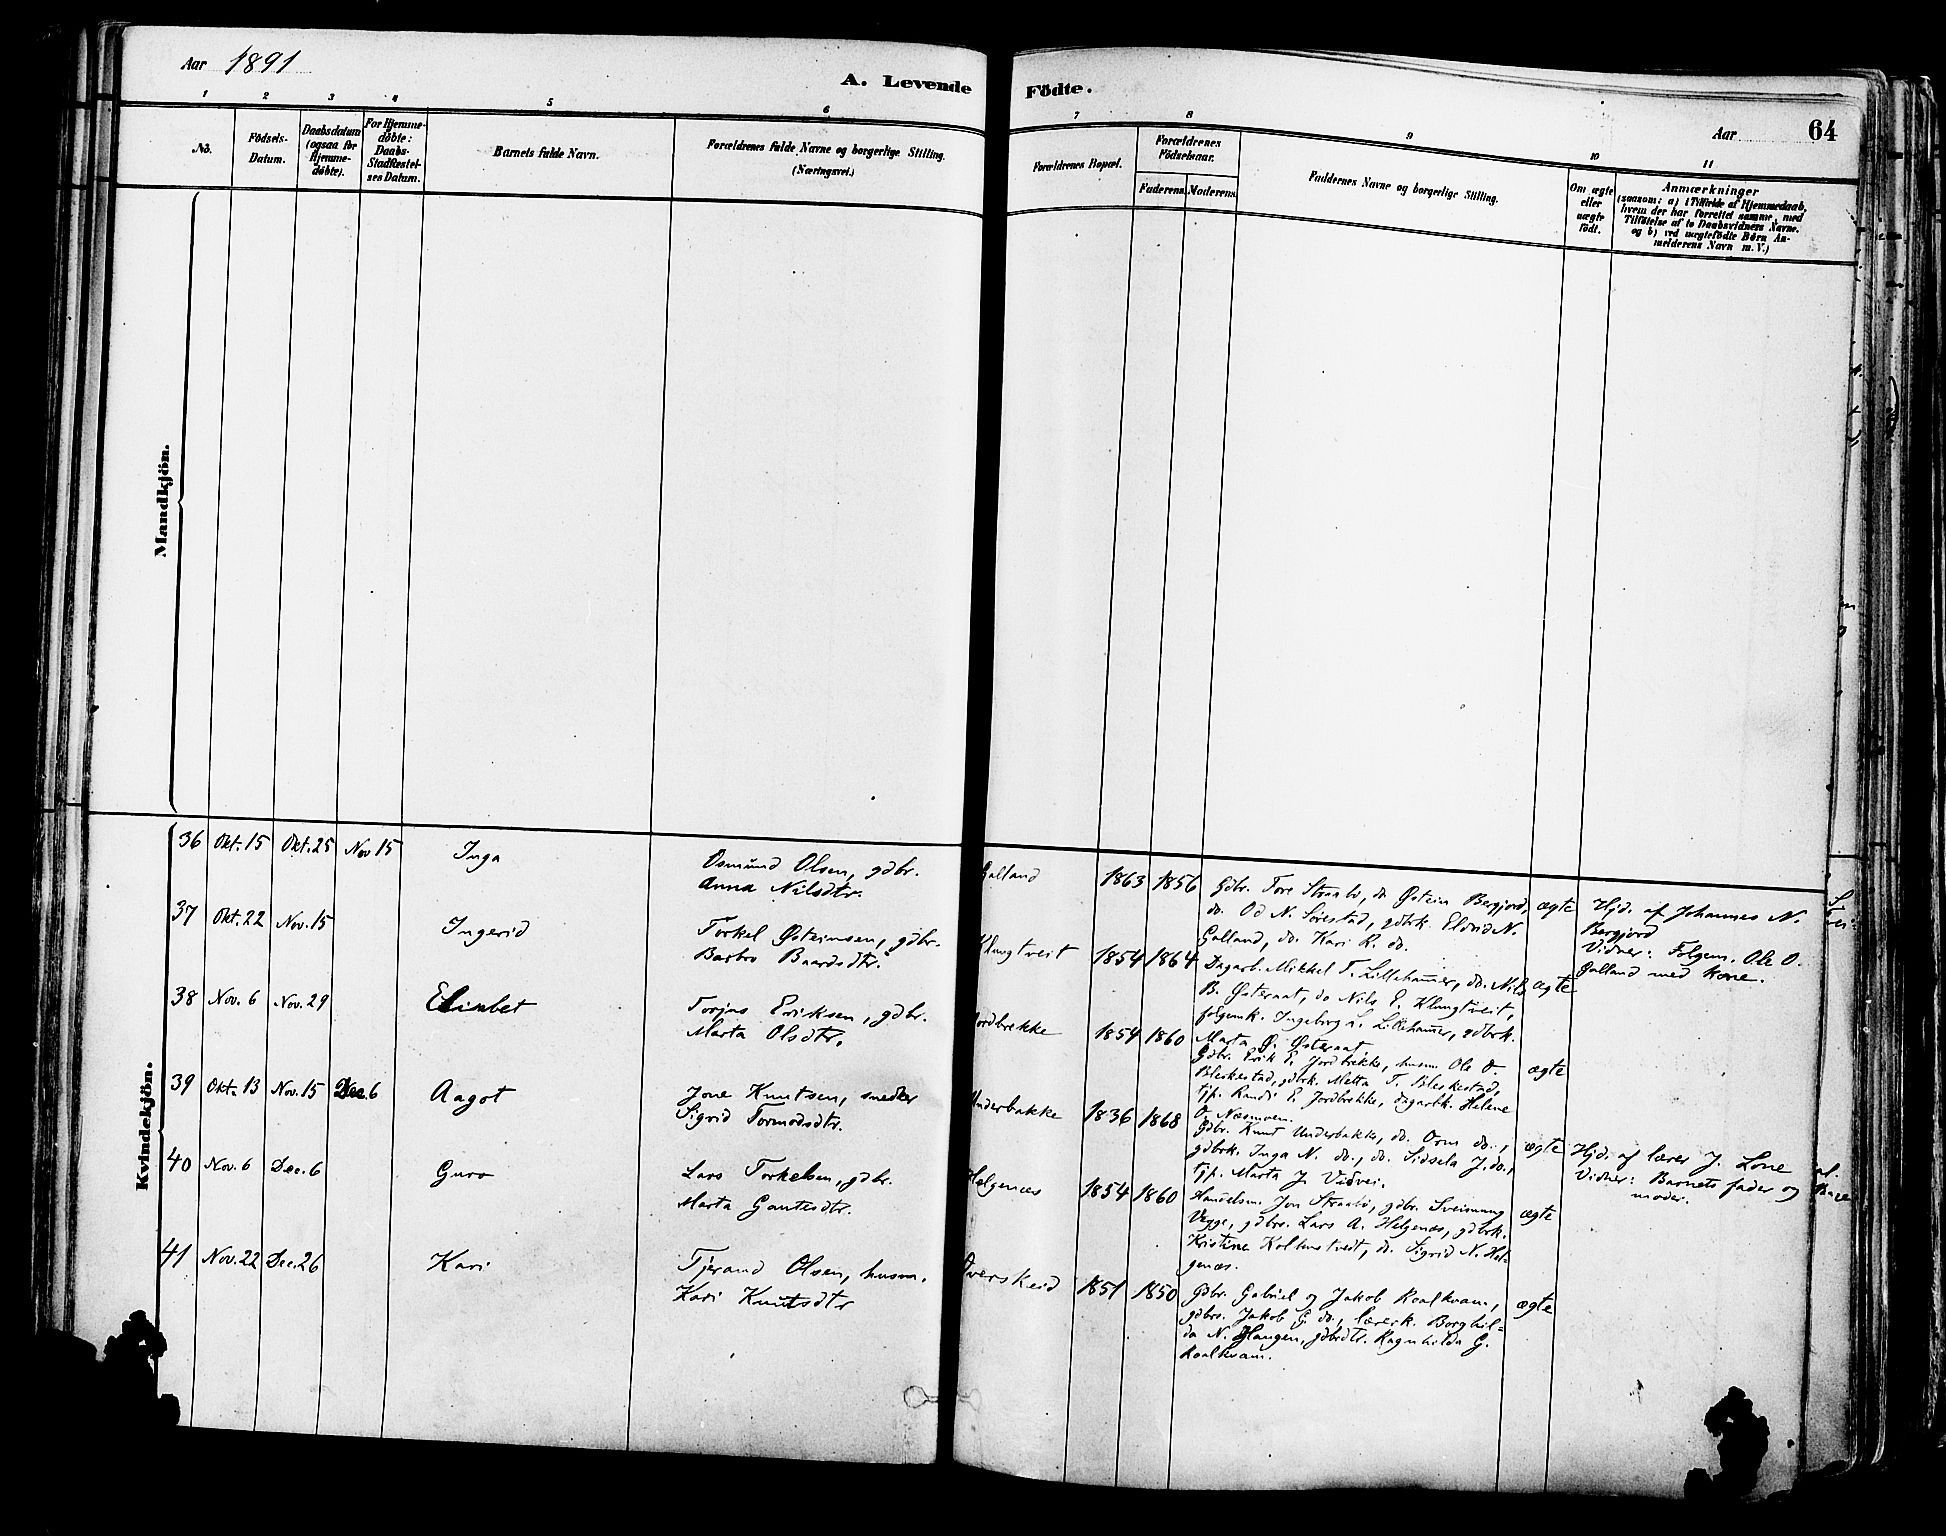 Aar 1891
A. Levende Födte.
Aar 64
1 2 3 4 5 6 7 8 9 10 11
No.
Födsels-
Datum.
Daabsdatum
(ogsaa for
Hjemme-
döbte).
For Hjemme-
döbte:
Daabs-
Stadfæstel-
ses Datum.
Barnets fulde Navn.
Forældrenes fulde Navne og borgerlige Stilling.
(Næringsvei.)
Forældrenes Bopæl.
Forældrenes
Födselsaar.
Faderens. Moderens.
Faddernes Navne og borgerlige Stilling.
Om ægte
eller
uægte
födt.
Anmærkninger
(saasom: a) i Tilfælde af Hjemmedaab,
hvem der har forrettet samme, med
Tilföielse af to Daabsvidners Navne.
og b) ved uægtefödte Börn An-
melderens Navn m. V.)
Mandkjön.
Kvindekjön.
36 Okt. 15 Okt. 25 Nov 15 Inga
Osmund Olsen, gdbr.
Anna Nilsdtr.
Galland 1863 1856
Gdbr. Tore Straabö, do Østein Bergjord,
do. Od N. Sörestad, gdbrk. Eldrid N.
Galland, do. Kari R. do.
ægte
Hjd. af Johannes N.
Bergjord
Vidner: Folgem. Ole O.
Galland med kone.
37 Okt. 22 Nov. 15 Ingerid
Torkel Østeinsen, gdbr.
Barbro Baardsdtr.
Klungtveit 1854 1864
Dagarb. Mikkel T. Lillehamer, do. Nils
B. Østeraat, do Nils E. Klungtveit,
folgemk. Ingeborg L. Lillehamer, gdbrk.
Marta Ø. Østeraat.
ægte
38 Nov. 6 Nov. 29 Elisabet
Torjus Eriksen, gdbr.
Marta Olsdtr.
Jordbrekke 1854 1860
Gdbr. Erik E. Jordbrekke, husm. Ole O.
Bleskestad, gdbrk. Metta T. Bleskestad,
tjp. Randi E. Jordbrekke, dagarbk. Helene
O. Næsmoen.
ægte
39 Okt. 13 Nov. 15 Dec. 6 Aagot
Jone Knutsen, snedker
Sigrid Tormodsdtr.
Underbakke 1836 1868
Gdbr. Knut Underbakke, do. Orm do.,
gdbrk. Inga N. do., do. Sidsela J. do.,
tjp. Marta J. Vidvei.
ægte
Hjd. af lærer J. Lone
Vidner: Barnets fader og
moder.
40 Nov. 6 Dec. 6 Guro
Lars Torkelsen, gdbr.
Marta Gautesdtr.
Helgenæs 1854 1860
Handelsm. Jon Straabö, gdbr. Sveinung
Vegge, gdbrs. Lars A. Helgenæs, gdbrk.
Kristine Kolbenstvedt, do. Sigrid N. Hel-
genæs.
ægte
41 Nov. 22 Dec. 26 Kari
Tjerand Olsen, husm.
Kari Knutsdtr
Överskeid 1851 1850
Gdbr. Gabriel og Jakob Roalkvam,
gdbrs. Jakob G. do., lærerk. Borghil-
da N. Haugen, gdbrdtr. Ragnhilda G.
Roalkvam.
ægte